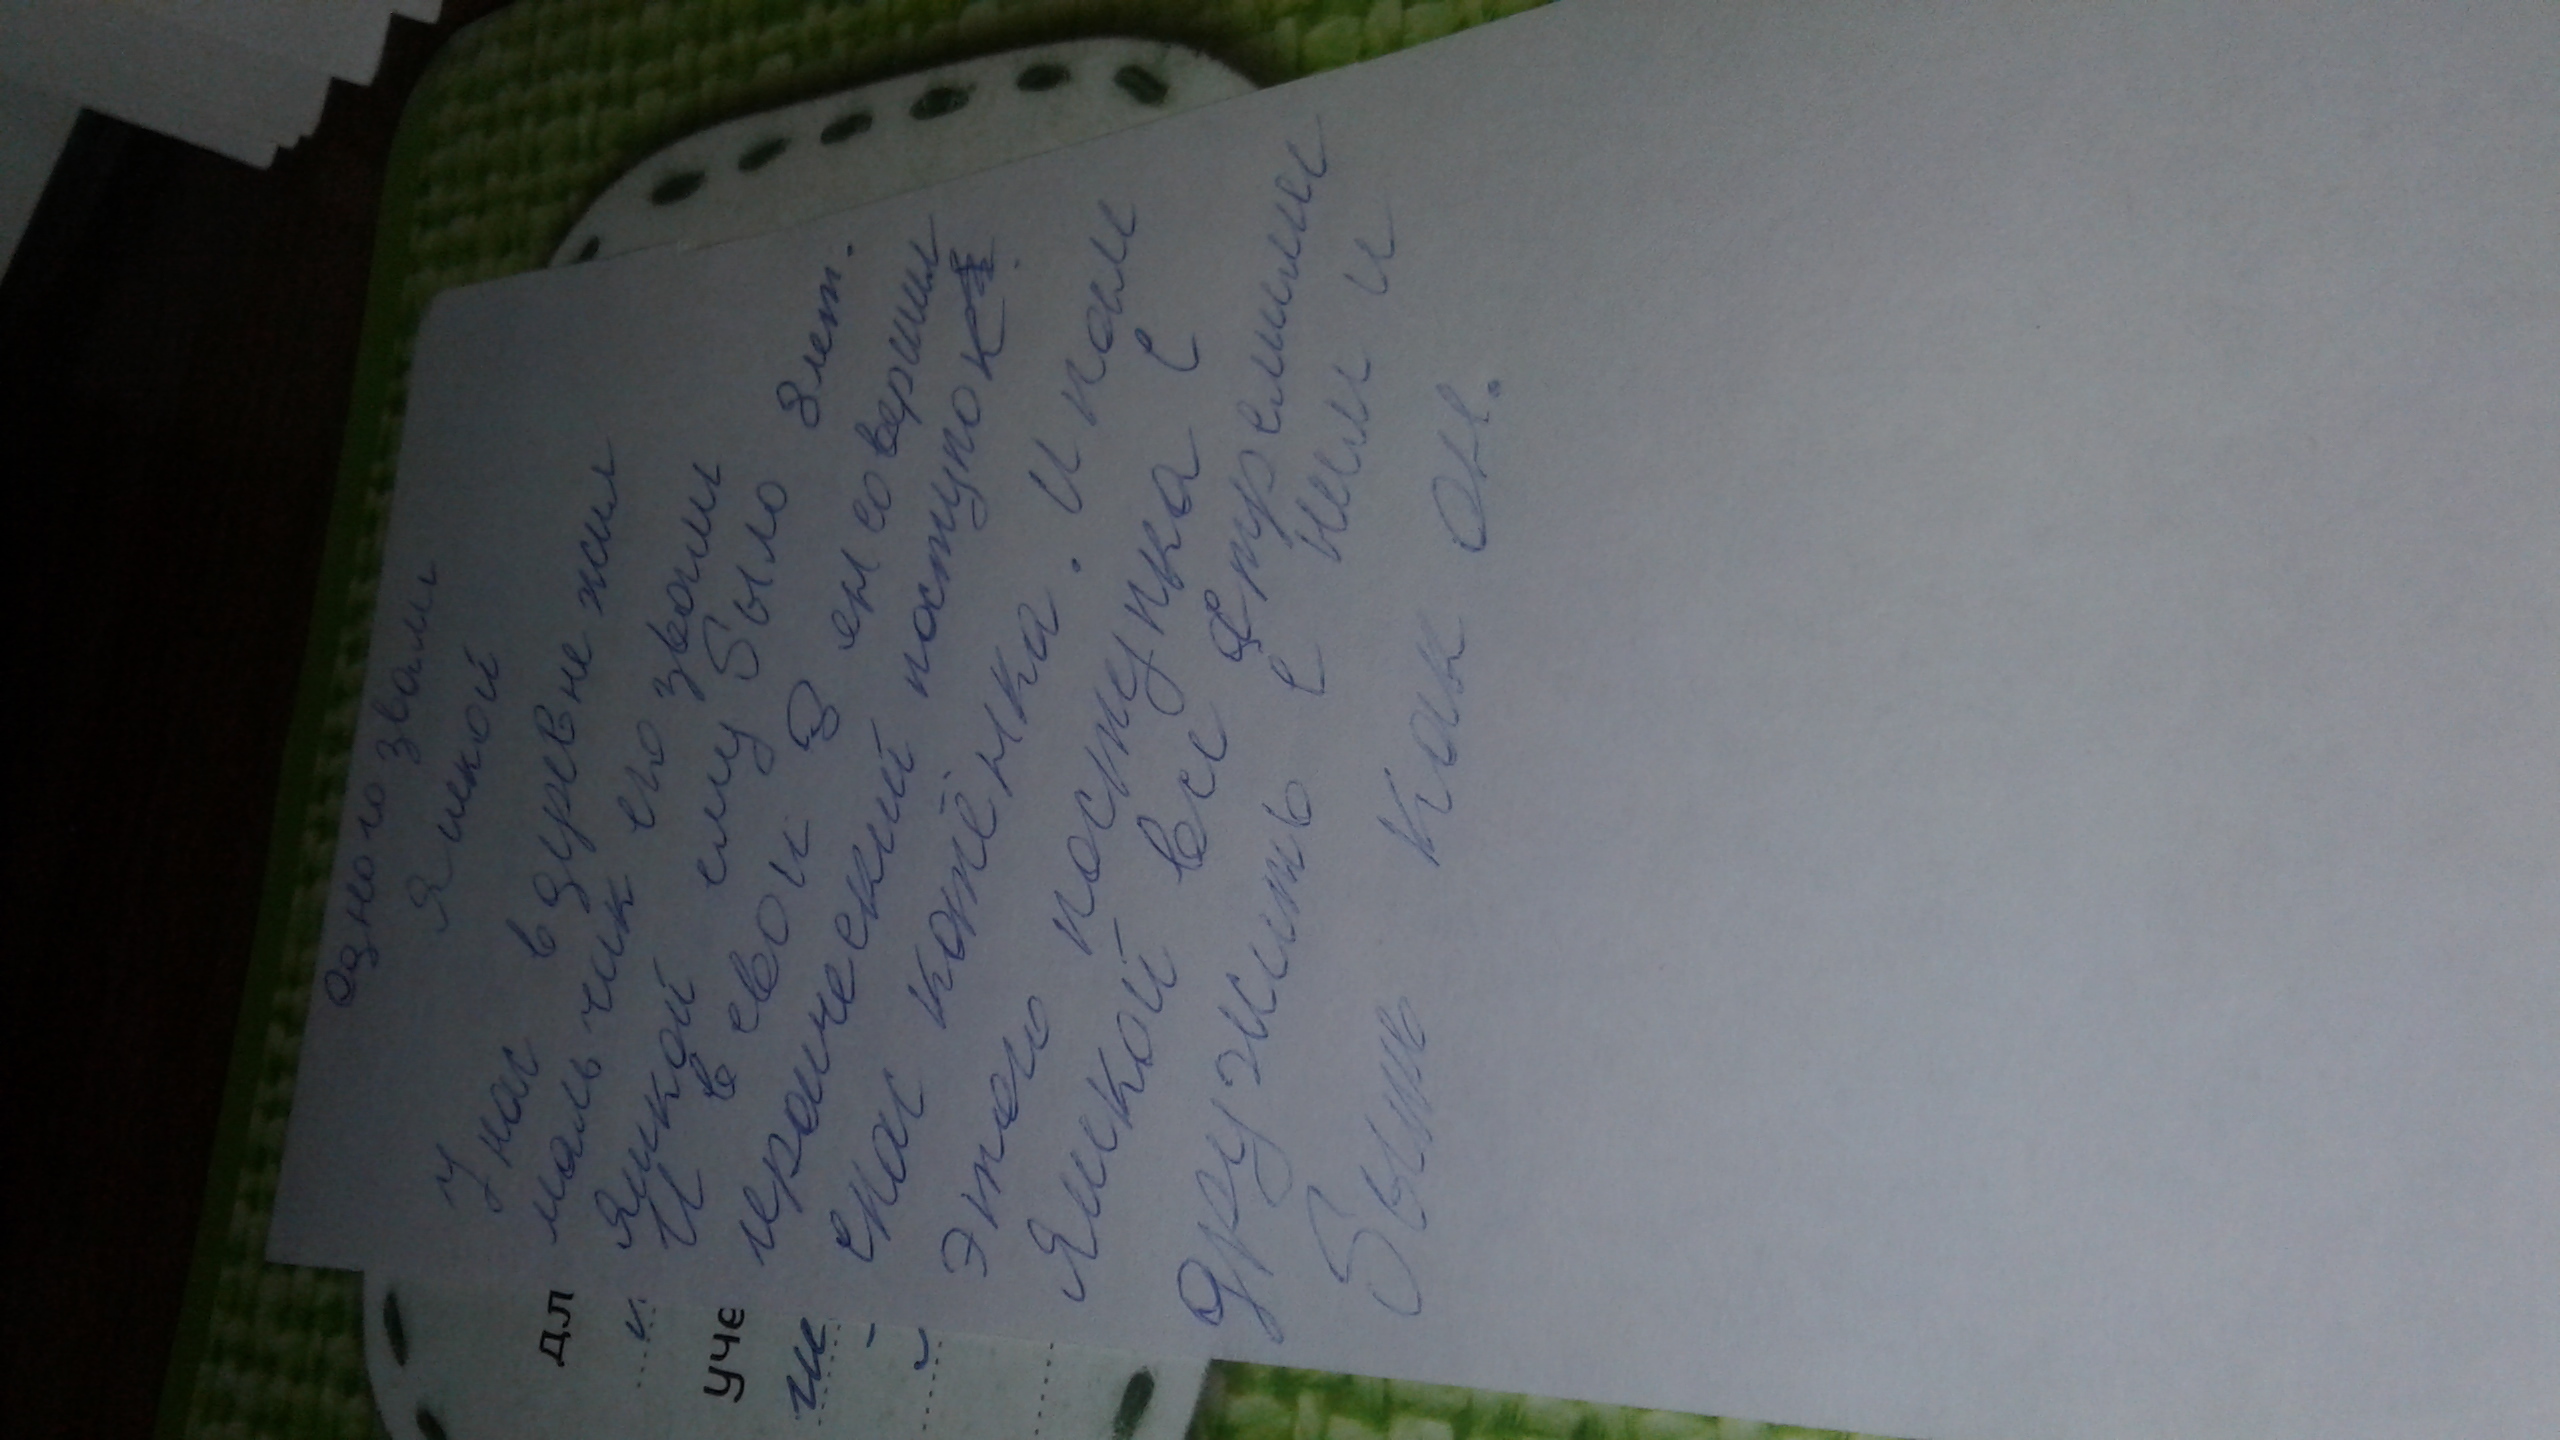 одного звали
Яшкой
У нас в деревне жил
мальчик его звали
Яшкой ему было 8 лет.
И в свои 8 ен совершил
героический поступок
спас котёнка. И пам
этого поступка с
Яшкой все стремились
дружить с ним и
Быть как он.
дл
уче